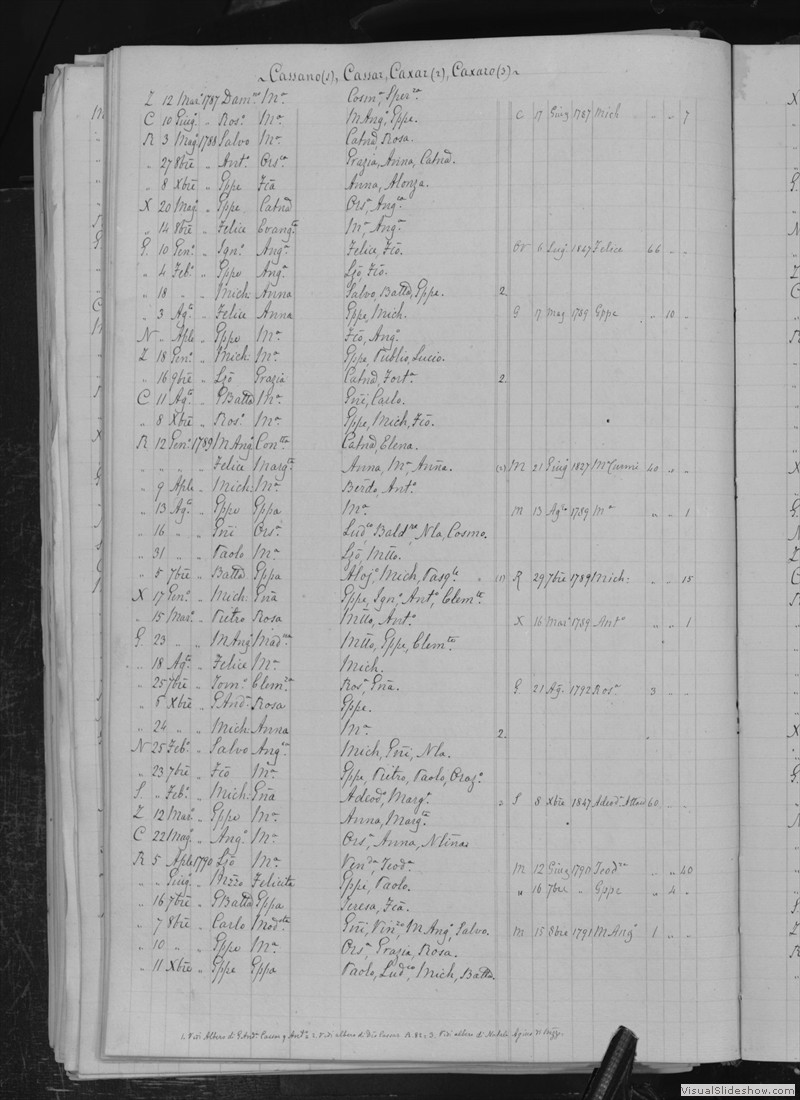 Cassano(s), Cassar, Caxar(2), Caxaro(3)
Z 12 Mar. 1787 Dam.no M.a Cosm.o, Sper.za
C 10 Giug. " Ros.o M.a M Ang.o, Gppe. C 17 Giug 1787 Mich " " 7
R 3 Mag. 1788 Salvo M.a Catnd, Rosa.
" 27 8bre " Ant.o Ors.a Grazia, Anna, Catnd.
" 8 Xbre " Gppe Fca Anna, Alonza.
X 20 Mag. " Gppe Catnd Ors.a, Ang.ca
" 14 8bre " Felice Evang.ta M.a, Ang.a
G. 10 Gen.o " Ign.o Ang.a Felice, Fco. 6 Lug. 1847 Felice 66 " "
" 4 Feb.o " Gppe Ang.a Ljo, Fco.
" 18 " " Mich: Anna Salvo, Batta, Gppe. 2.
" 3 Ag. " Felice Anna Gppe, Mich. G 17 Mag 1789 Gppe " 10 "
N " Aple " Gppe M.a Fco, Ang.o
Z 18 Gen.o " Mich: M.a Gppe, Publio, Lucio.
" 16 9bre " Ljo Grazia Catnd, Fort.a 2.
C 11 Ag. " GBatta M.a Gni, Carlo.
" 8 Xbre " Ros.o M.a Gppe, Mich, Fco.
R 12 Gen.o 1789 M Ang. Con.tta Catnd, Elena.
" " " " Felice Marg.ta Anna, M.a, Anna. M 21 Giug 1827 40 " "
" 9 Aple " Mich: M.a Berdo, Ant.o
" 13 Ag. " Gppe Gppa M.a M 13 Ag. 1789 M.a " " 1
" 16 " " Gni Ors.a Lud.co, Bald.re, Nla, Cosmo.
" 31 " " Paolo M.a Ljo, Mtto.
" 5 7bre " Batta Gppa Aloj.o, Mich, Pasq.le (1) R 29 7bre 1789 Mich: " " 15
X 17 Gen.o " Mich: Gna Gppe, Ign.o, Ant.o, Clem.te
" 15 Mar.o " Pietro Rosa Mtto, Ant.o X 16 Mar 1789 Ant.o " " 1
G. 23 " " M Ang. Mad.na Mtto, Gppe, Clem.te
" 18 Ag. " Felice M.a Mich.
" 25 7bre " Tom.o Clem.za Ros.a, Gna. G. 21 Ag. 1792 Ros.a 3 " "
" 5 Xbre " GAnd. Rosa Gppe.
" 24 " " Mich: Anna M.a 2.
N 25 Feb.o " Salvo Ang.ca Mich, Gni, Nla.
" 23 7bre " Fco M.a Gppe, Pietro, Paolo, Oraz.o
S. " Feb.o " Mich: Gna Adeod.o, Marg.a S 8 Xbre 1847 Adeod. 60 " "
Z 12 Mar.o " Gppe M.a Anna, Marg.ta
C 22 Mag. " Ang.o M.a Ors.a, Anna, Ntlina
R 5 Aple 1790 Ljo M.a Ven.da, Teod.ra M 12 Giug 1790 Teod.ra " " 40
" " Giug. " Mzzo Felicita Gppe, Paolo. " 16 7bre " Gppe " 4 "
" 16 7bre " GBatta Gppa Teresa, Fca.
" 7 8bre " Carlo Mod.sta Gni, Vin.zo, M Ang.o, Salvo. M 15 8bre 1791 M Ang.o 1 " "
" 10 " " Gppe M.a Ors.a, Grazia, Rosa.
" 11 Xbre " Gppe Gppa Paolo, Lud.co, Mich, Batta.
1. Vedi Albero di GAnd. 2. Vedi albero di 3. Vedi albero di
VisualSlideshow.com